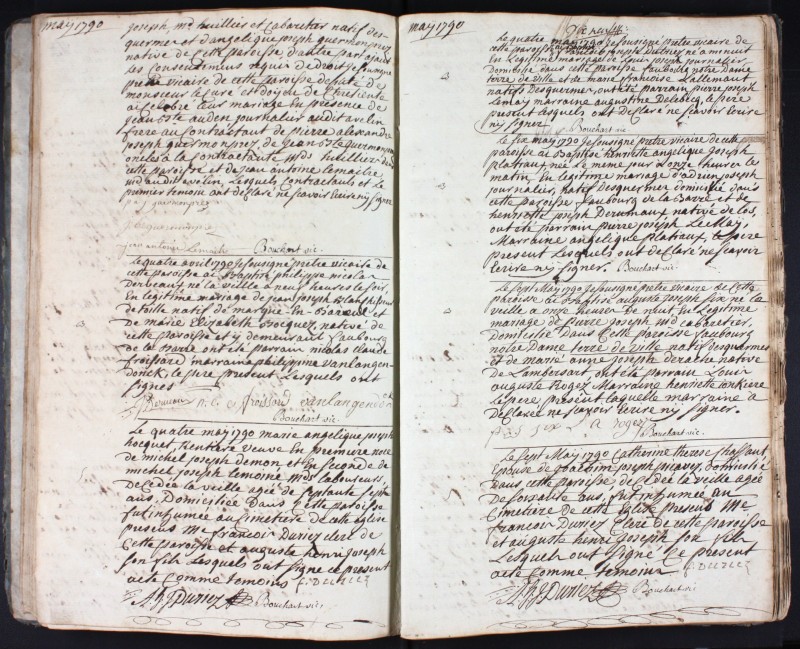 may 1790
joseph, md huillier et Cabaretier natif des
quermes et d'angelique joseph quermonprez
native de cette paroisse d'autre part, ayant
les Consentemens requis de droit, je soussigné
pretre vicaire de cette paroisse deputé de
monsieur le Curé et doyen de Chretienté
ai Celebré Leur mariage En presence de
journalier audit avelin
frere au Contractant de pierre alexandre
joseph quermonprez, de jean Bte quermonprez
oncles à la Contractante mds huilliers de
cette paroisse et de jean antoine Lemaitre
md audit avelin, Lesquels Contractants et Le
premier temoin ont declaré ne scavoir ecrire ny signer
p a j quermonprez
jean antoine Lemaitre Bouchart vic.
Le quatre avril 1790 je soussigné pretre vicaire de
cette paroisse ai Baptisé philippe nicolas
né la veille a neuf heures le soir,
En legitime mariage de jean joseph
de toille natif de marque En Baroeul et
de marie Elizabeth Brocquez, native de
cette paroisse et y demeurant faubourg
de la Barre ont été parrain nicolas Claude
froissart marraine philippine vanlangen-
donck, le pere present Lesquels ont
signés
n. c. froissard vanlangendonck
Bouchart vic.
Le quatre may 1790 marie angelique joseph
hocquet, Rentiere veuve En premiere noce
de michel joseph demon et En seconde de
michel joseph Lemoine mds laboureurs,
decedée la veille agée de septante sept
ans, Domiciliée dans cette paroisse
fut inhumée au Cimetiere de cette eglise
presens Me francois Duriez clerc de
Cette paroisse et auguste henri joseph
son fils Lesquels ont signé ce present
acte Comme temoins f. Duriez
AHJ Duriez Bouchart vic.
may 1790
Le quatre may 1790 je soussigné pretre vicaire de
cette paroisse ai Baptisé né a minuit
En Legitime mariage de Louis joseph journalier
Domicilié dans cette paroisse faubourg notre Dame
terre de ville et de marie francoise Lallemant
natifs Desquermes, ont été parrain pierre joseph
Lemay marraine augustine Delebecq, le pere
present Lesquels ont declaré ne scavoir Ecrire
ny signer. Bouchart vic.
Le six may 1790 je soussigné pretre vicaire de cette
paroisse ai Baptisé henriette angelique joseph
platiaux née Le meme jour a onze heures les
matin, En legitime mariage d'adrien joseph
journalier, natif Desquermes domicilié dans
cette paroisse faubourg de la Barre et de
henriette joseph Derumaux native de Los,
ont été parrain pierre joseph LeMay,
Marraine angelique platiaux, Le pere
present Lesquels ont declaré ne scavoir
Ecrire ny signer. Bouchart vic.
Le sept May 1790 je soussigné pretre vicaire de cette
paroisse ai Baptisé auguste joseph six né la
veille a onze heures de nuit En Legitime
mariage de pierre joseph md cabaretier,
Domicilié Dans Cette paroisse faubourg
notre Dame terre de ville natif desquermes
et de marie anne joseph derache native
de Lambersart ont été parrain Louis
auguste Rogez Marraine henriette
Le pere present laquelle marraine a
declaré ne scavoir Ecrire ny signer.
p j six L A Rogez
Bouchart vic.
Le sept May 1790 Catherine therese
Epouse de joachim joseph domiciliée
Dans cette paroisse decedée la veille agée
de soixante ans, fut inhumée au
Cimetiere de cette eglise presens Me
francois Duriez Clerc de cette paroisse
et auguste henri joseph son fils
Lesquels ont signé Ce present
acte Comme temoins f. Duriez
AHJ Duriez Bouchart vic.